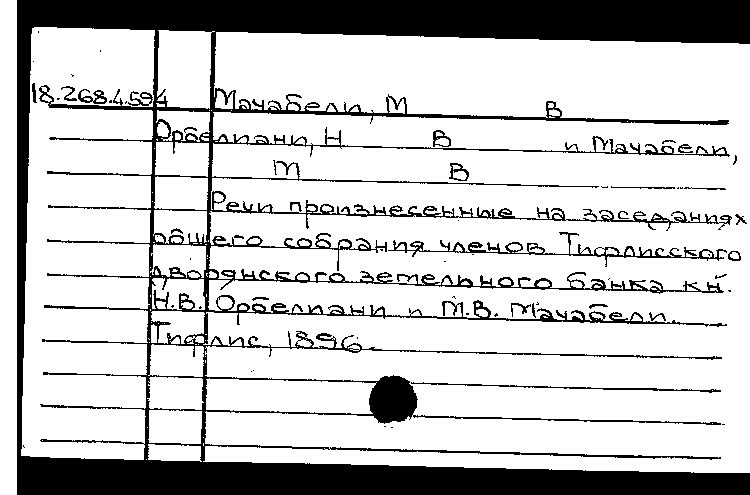 18.268.4.594 Мачабели, М В
Орбелиани, Н В и Мачабели,
М В
Речи произнесенные на заседаниях
общего собрания членов Тифлисского
дворянского земельного банка кн.
Н.В. Орбелиани и М.В. Мачабели.
Тифлис, 1896.